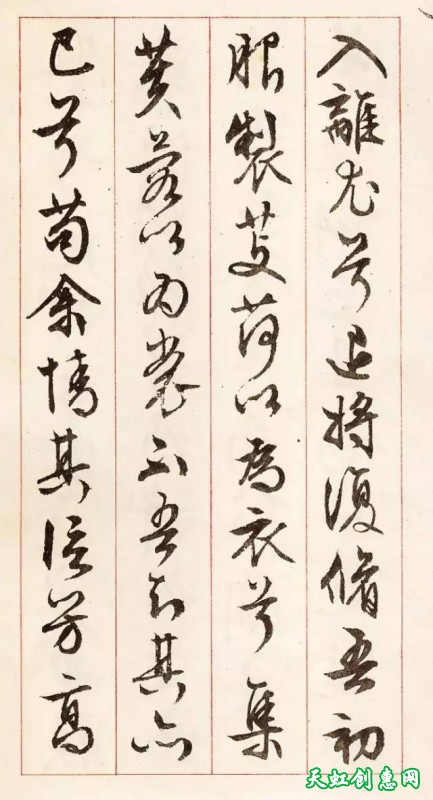 入離尤兮退將復脩吾初
服製芰荷以為衣兮集
芙蓉以為裳不吾知其亦
已兮苟余情其信芳高
天虹创意网